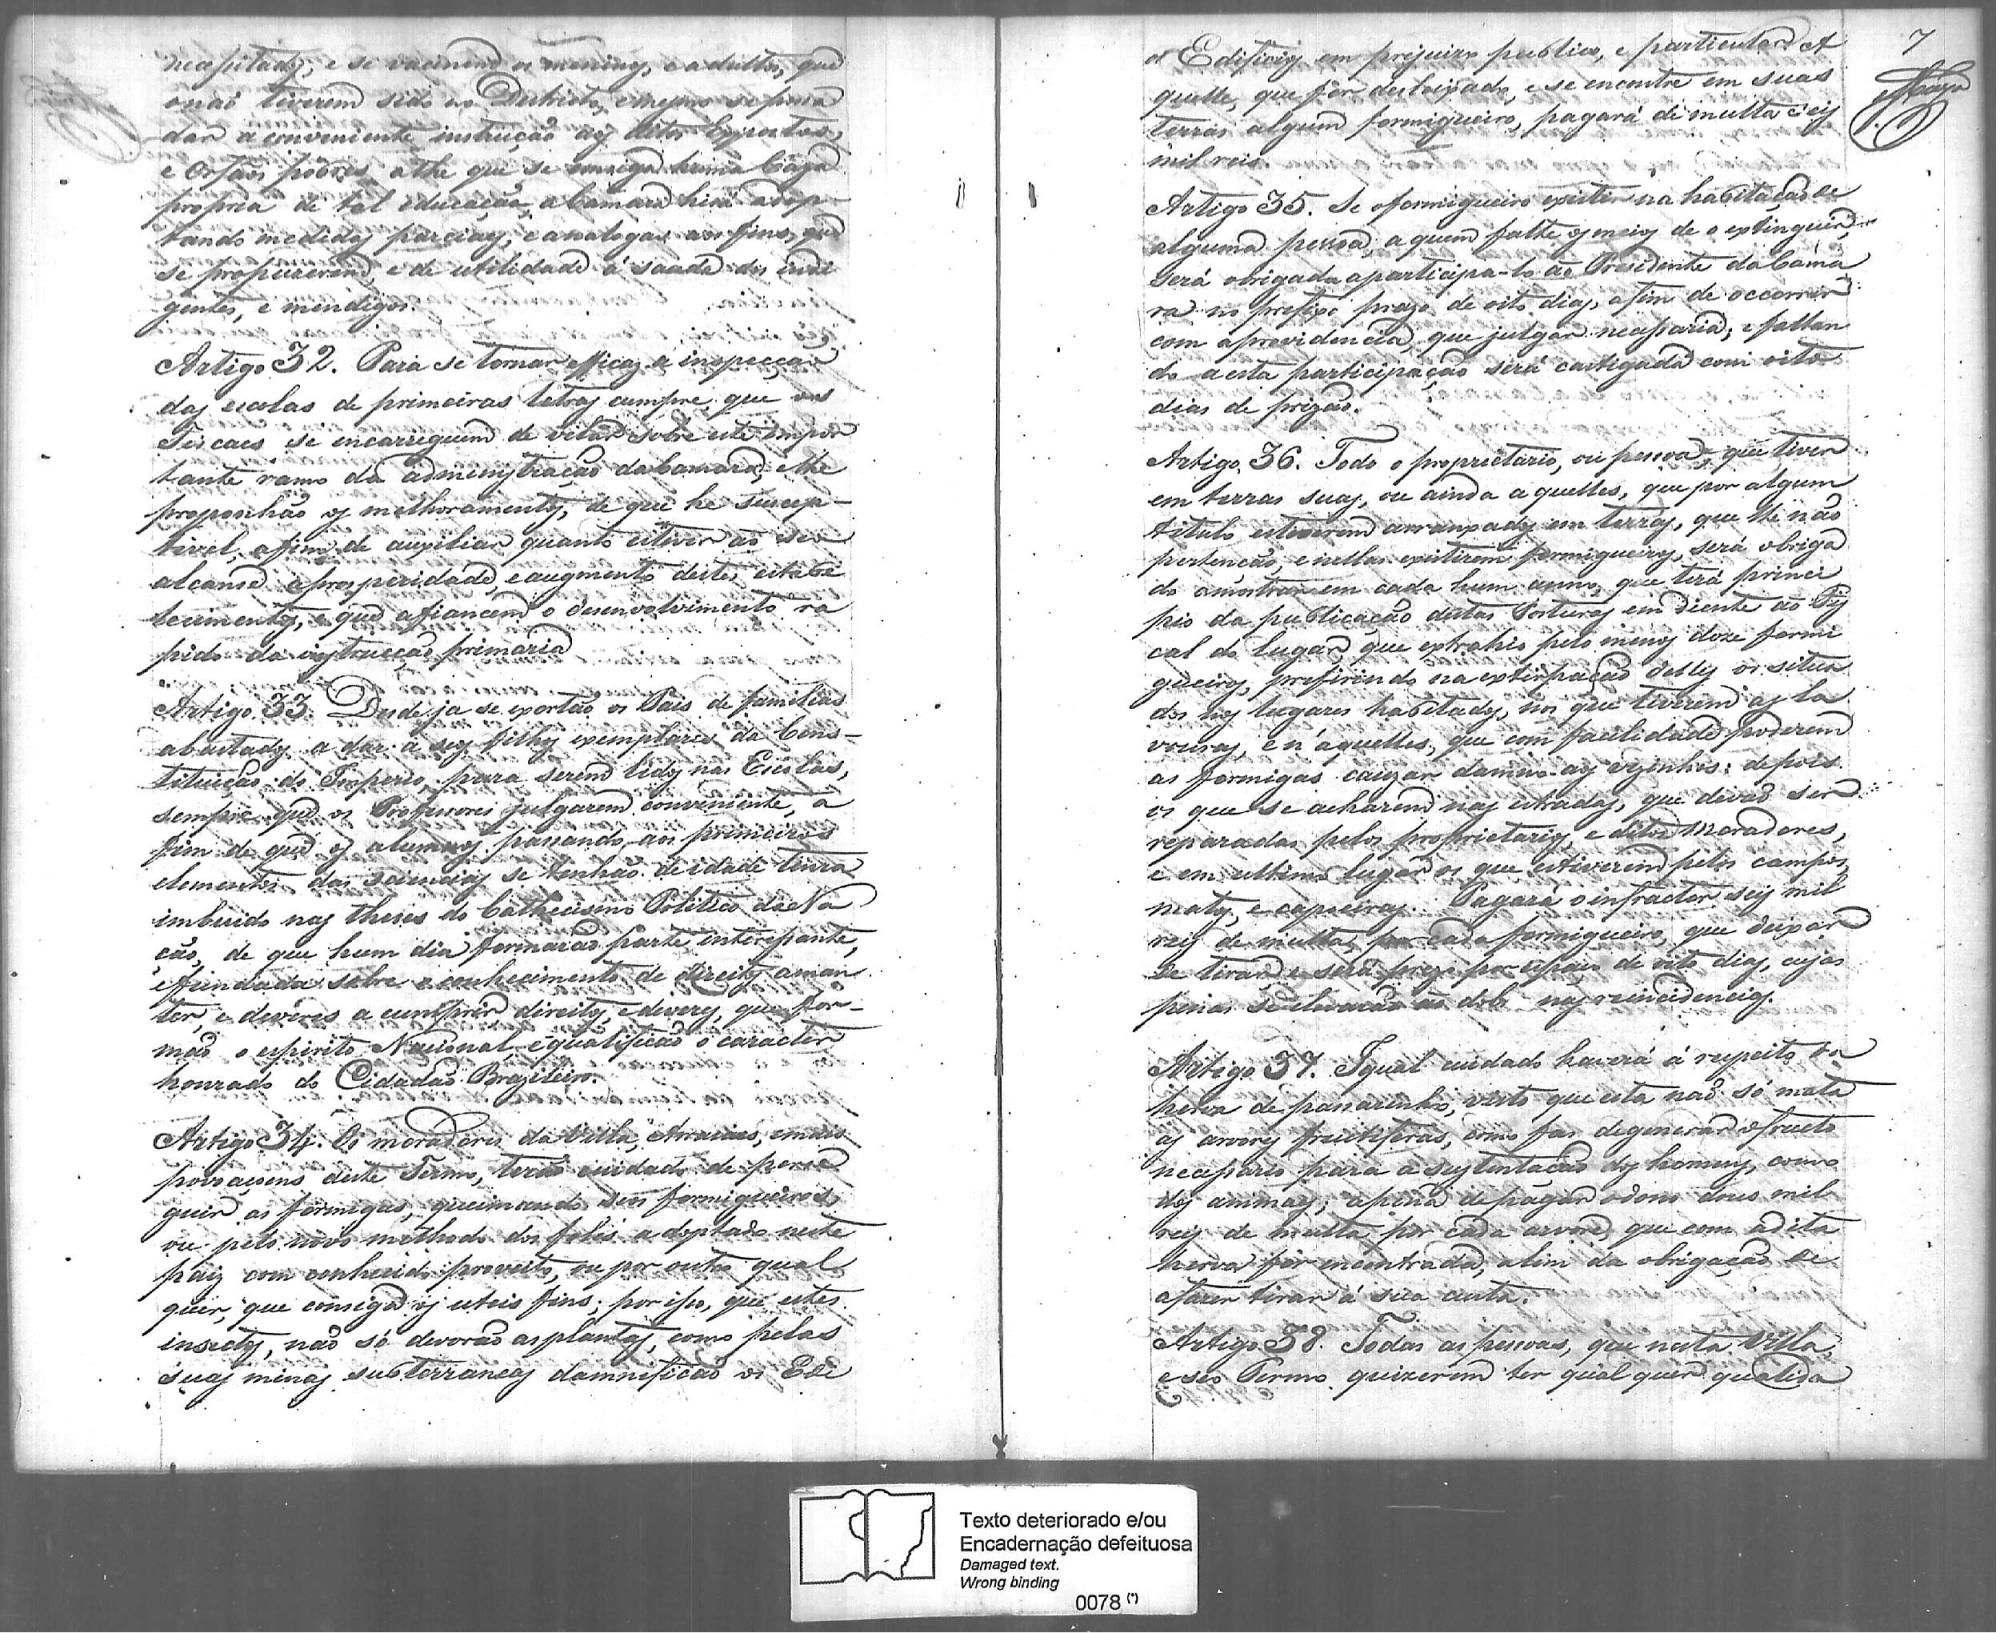 necessitados, e se vacinem os meninos, e adultos, que
o naõ tiverem sido no Districto, e mesmo se possa
dar a conveniente instrucçaõ aos ditos Expostos,
e Orfaõs pobres, athe que se consiga huma Caza
propria de tal educaçaõ, a Camara hirá adop-
tando medidas parciaes, e analogas aos fins, que
se propuzerem, e de utilidade á saude dos indi
gentes, e mendigos.
Artigo 32. Para se tornar efficaz a inspecçaõ
das escolas de primeiras letras cumpre, que os
Fiscaes se encarreguem de velar sobre este impor
tante ramo da administraçaõ da Camara, e lhe
proponhaõ os melhoramentos, de que he suscep-
tivel, afim de auxiliar quanto estiver ao seu
alcanse a prosperidade, e augmento destes estabe
lecimentos, que afiancem o desenvolvimento ra
pido da instrucçaõ primaria
Artigo 33. Desde já se exortaõ os Pais de familias
abastados a dar a seus filhos exemplares da Cons-
tituiçaõ do Imperio, para serem lidos nas Escolas,
sempre que os Professores julgarem conveniente, a
fim de que os alumnos, passando aos primeiros
elementos das sciencias se tenhaõ de idade tenra
imbuido nas theses do Cathecismo Politico da Na
çaõ, de que hum dia formaraõ parte interessante,
e fundada sobre o conhecimento de direitos a man
ter, e deveres a cumprir direitos, e deveres, que for-
maõ o espirito Nacional, e qualificaõ o caracter
honrado do Cidadaõ Brazileiro.
Artigo 34. Os moradores da Villa, Arraiaes, e mais
povoaçoens deste Termo, teraõ cuidado de perse
guir as formigas, queimando seus formigueiros,
ou pelo novo methodo dos foles adoptado neste
paiz com conhecido proveito, ou por outro qual
quer, que consiga os uteis fins; por isso, que estes
insectos, naõ só devoraõ as plantas, como pelas
suas minas subterraneas damnificaõ os Edi
7
os Edificios em prejuizo publico, e particular. A
quelle, que fôr desleixado, e se encontre em suas
terras algum formigueiro, pagará de multa seis
mil reis.
Artigo 35. Se o formigueiro existir na habitaçaõ de
alguma pessoa, a quem falte os meios de o extinguir,
será obrigada a participa-lo ao Presidente da Cama
ra no prefixo prazo de oito dias, afim de occorrer
com a providencia, que julgar necessaria; e faltan
do a esta participaçaõ será castigada com oito
dias de prizaõ.
Artigo 36. Todo o proprietario, ou pessoa que tiver
em terras suas, ou ainda aquelles, que por algum
titulo estiverem arranxados em terras, que lhe naõ
pertençaõ, e nellas existirem formigueiros, será obriga
do a mostrar em cada hum anno, que terá princi
pio da publicaçaõ destas Posturas em diente ao Fis
cal do lugar, que extrahio pelo menos doze formi
gueiros, preferindo na extirpaçaõ delles os situa
dos nos lugares habitados, nos que tiverem as la
vouras, e n'aquelles, que com facilidade poderem
as formigas cauzar damno aos vizinhos: depois
os que se acharem nas estradas, que devaõ ser
reparadas pelos proprietarios, e ditos Moradores,
e em ultimo lugar os que estiverem pelos campos,
matos, e capoeiras. Pagará o infractor seis mil
reis de multa, por cada formigueiro, que deixar
de tirar, e será prezo por espaço de oito dias, cujas
penas se elevaraõ ao dobro nas reincidencias.
Artigo 37. Igual cuidado haverá á respeito da
herva de passarinho, visto que esta naõ só mata
as arvores fructiferas, como faz degenerar o fructo
necessario para a sustentaçaõ dos homens, como
dos animaes; a pena de pagar o dono dous mil
reis de multa por cada arvore, que com a dita
herva fôr encontrada, alem da obrigaçaõ de
a fazer tirar á sua custa.
Artigo 38. Todas as pessoas, que nesta Villa,
e seo Termo quizerem ter qual quer qualida
Texto deteriorado e/ou
Encadernação defeituosa
Damaged text.
Wrong binding
0078 (*)